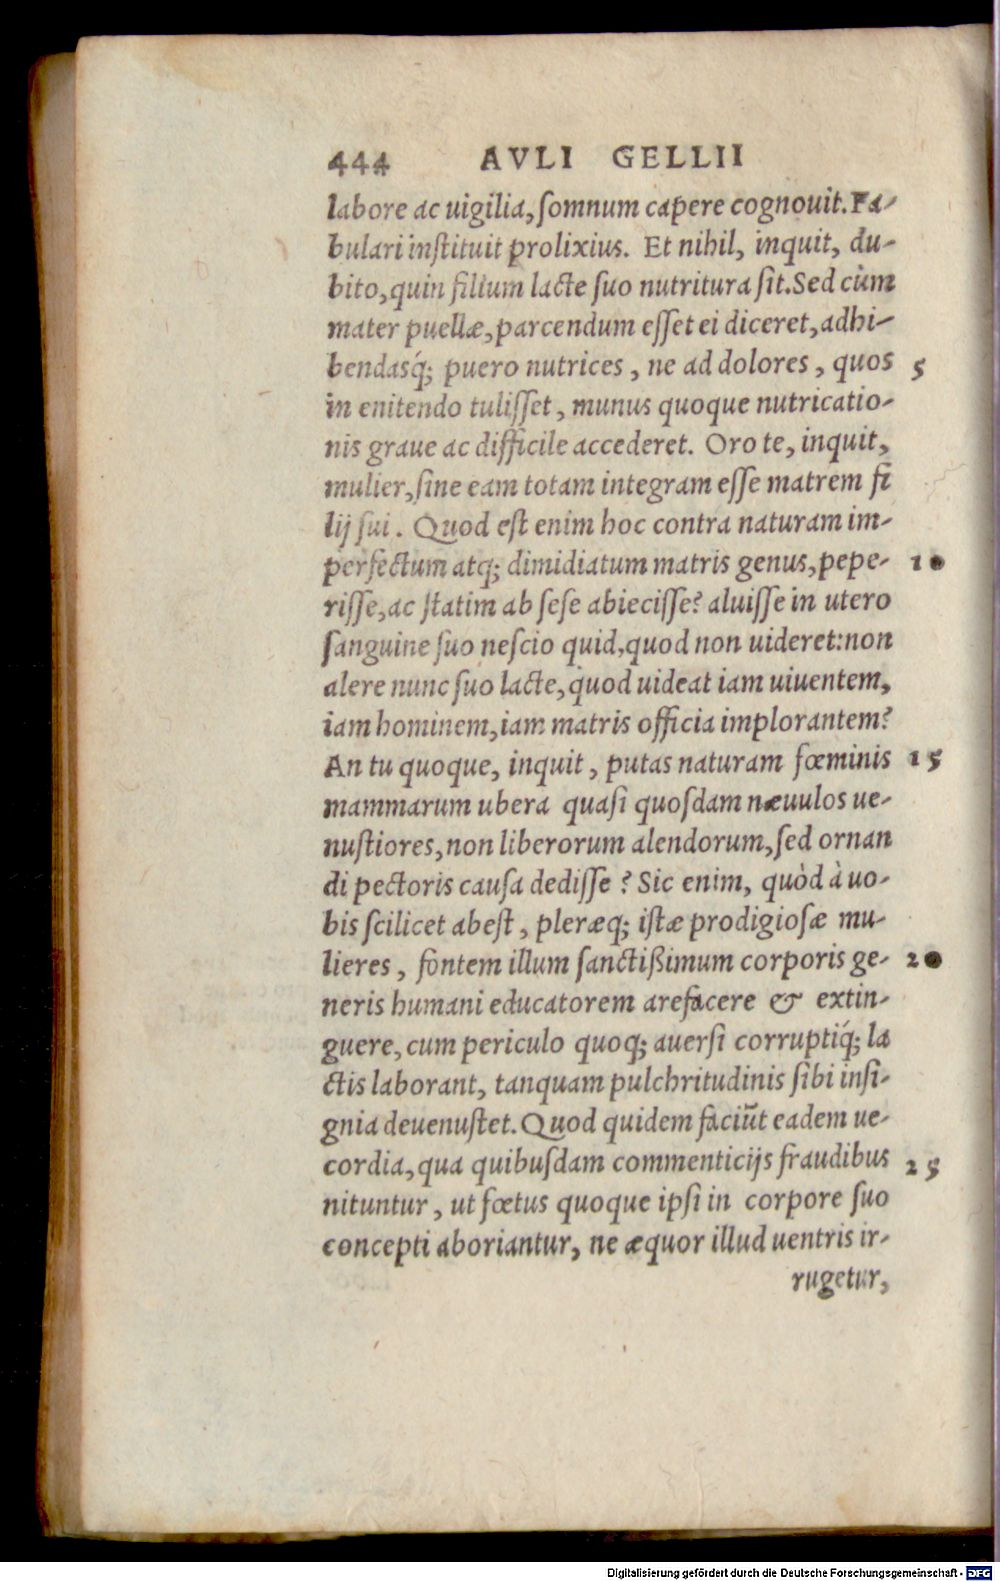 444 AVLI GELLII
labore ac uigilia, ſomnum capere cognouit. Fa-
bulari inſtituit prolixius. Et nihil, inquit, du-
bito, quin filium lacte ſuo nutritura ſit. Sed cùm
mater puellæ, parcendum eſſet ei diceret, adhi-
bendasq́; puero nutrices, ne ad dolores, quos 5
in enitendo tuliſſet, munus quoque nutricatio-
nis graue ac difficile accederet. Oro te, inquit,
mulier, ſine eam totam integram eſſe matrem fi
lij ſui. Quod eſt enim hoc contra naturam im-
perfectum atq; dimidiatum matris genus, pepe- 10
riſſe, ac ſtatim ab ſeſe abieciſſe? aluiſſe in utero
ſanguine ſuo neſcio quid, quod non uideret: non
alere nunc ſuo lacte, quod uideat iam uiuentem,
iam hominem, iam matris officia implorantem?
An tu quoque, inquit, putas naturam fœminis 15
mammarum ubera quaſi quoſdam næuulos ue-
nuſtiores, non liberorum alendorum, ſed ornan
di pectoris cauſa dediſſe? Sic enim, quòd à uo-
bis ſcilicet abeſt, pleræq; iſtæ prodigioſæ mu-
lieres, fontem illum ſanctißimum corporis ge- 20
neris humani educatorem arefacere & extin-
guere, cum periculo quoq; auerſi corruptiq́; la
ctis laborant, tanquam pulchritudinis ſibi inſi-
gnia deuenuſtet. Quod quidem faciũt eadem ue-
cordia, qua quibuſdam commenticijs fraudibus 25
nituntur, ut fœtus quoque ipſi in corpore ſuo
concepti aboriantur, ne æquor illud uentris ir-
rugetur,
Digitalisierung gefördert durch die Deutsche Forschungsgemeinschaft - DFG